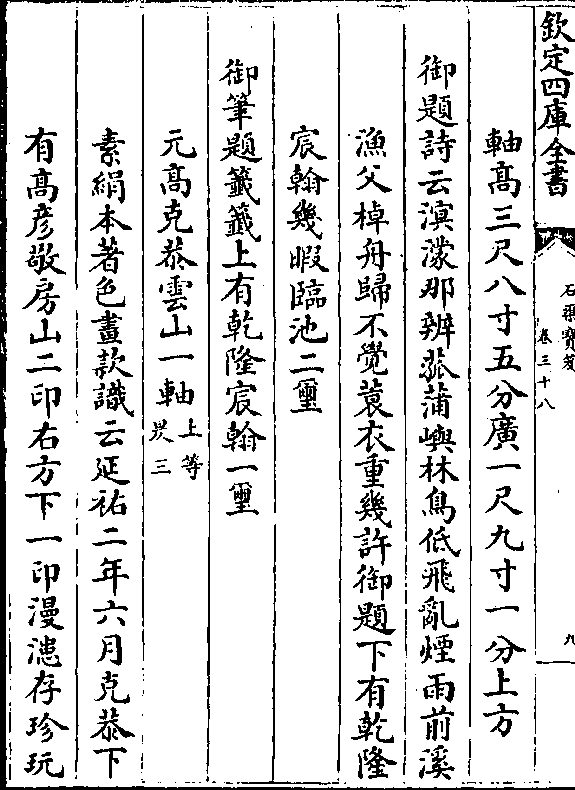 欽定四庫全書
石渠寶笈
卷三十八
九
軸高三尺八寸五分廣一尺九寸一分上方
御題詩云溟濛那辨菰蒲嶼林鳥低飛亂煙雨前溪
漁父棹舟歸不覺蓑衣重幾許御題下有乾隆
宸翰幾暇臨池二璽
御筆題籤籤上有乾隆宸翰一璽
元高克恭雲山一軸上等
昃三
素絹本著色畫款識云延祐二年六月克恭下
有高彦敬房山二印右方下一印漫漶存珍玩